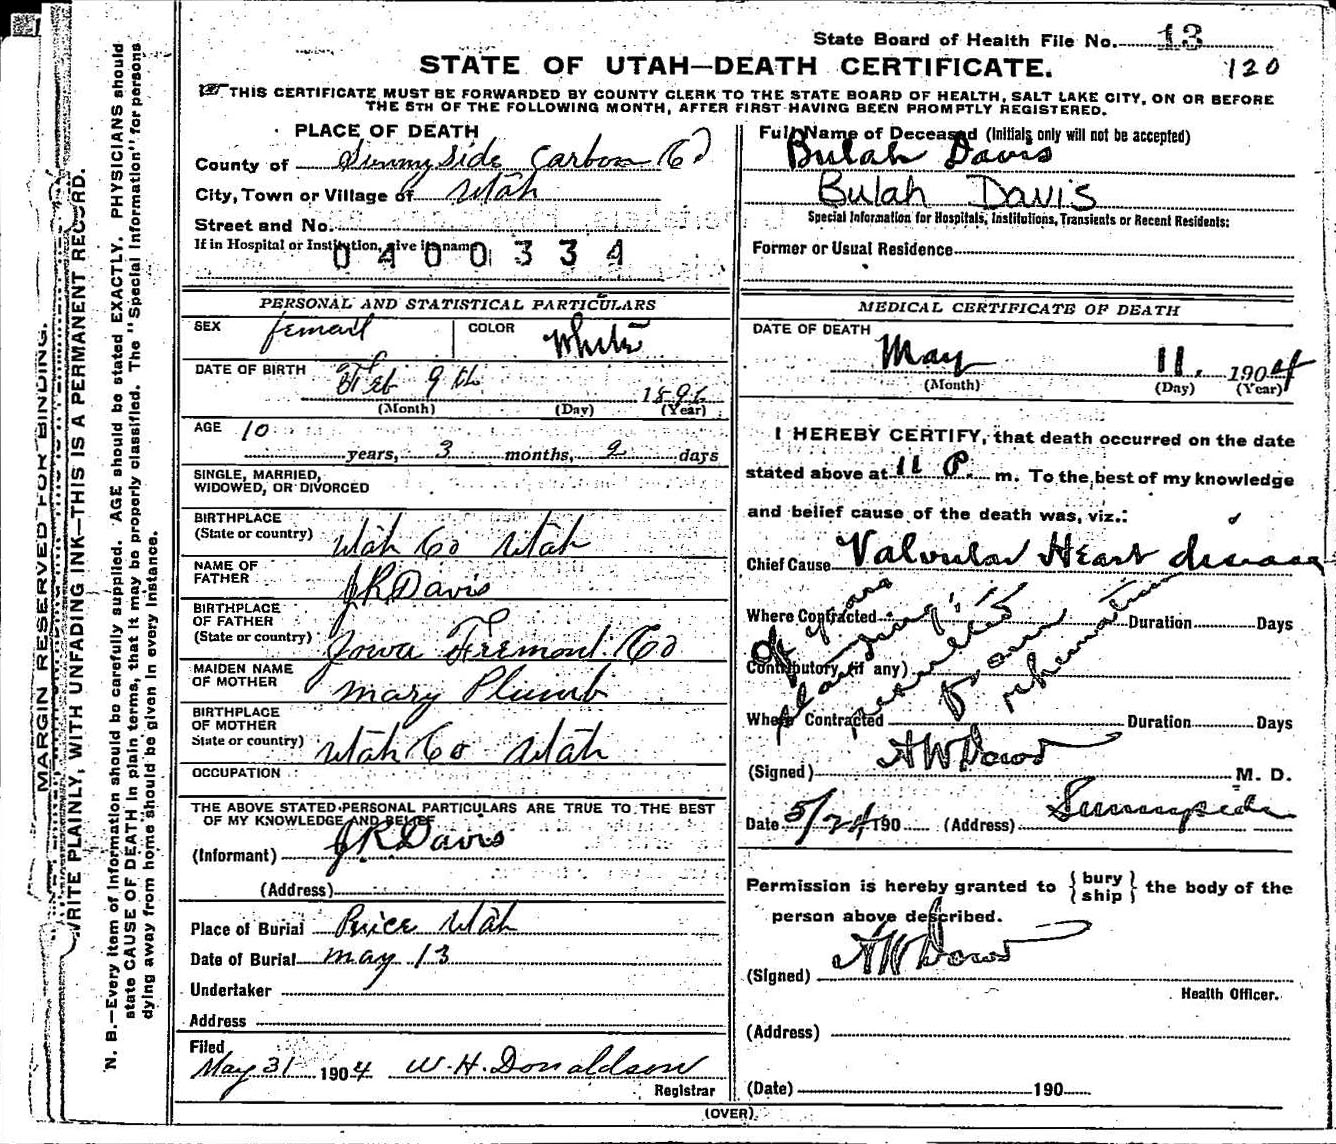 State Board of Health File No. 13
STATE OF UTAH—DEATH CERTIFICATE.
120
THIS CERTIFICATE MUST BE FORWARDED BY COUNTY CLERK TO THE STATE BOARD OF HEALTH, SALT LAKE CITY, ON OR BEFORE
THE 5TH OF THE FOLLOWING MONTH, AFTER FIRST HAVING BEEN PROMPTLY REGISTERED.
MARGIN RESERVED FOR BINDING.
WRITE PLAINLY, WITH UNFADING INK—THIS IS A PERMANENT RECORD.
N. B.—Every item of information should be carefully supplied. AGE should be stated EXACTLY. PHYSICIANS should
state CAUSE OF DEATH in plain terms, that it may be properly classified. The "Special Information" for persons
dying away from home should be given in every instance.
PLACE OF DEATH
County of Sunny Side Carbon Co
City, Town or Village of Utah
Street and No.
If in Hospital or Institution, give its name
0400334
PERSONAL AND STATISTICAL PARTICULARS
SEX femail COLOR White
DATE OF BIRTH Feb 9th
(Month) (Day) (Year)
AGE 10
years, 3 months, 2 days
SINGLE, MARRIED,
WIDOWED, OR DIVORCED
BIRTHPLACE
(State or country) Utah Co Utah
NAME OF
FATHER J R Davis
BIRTHPLACE
OF FATHER
(State or country) Iowa Fremont Co
MAIDEN NAME
OF MOTHER Mary Plumb
BIRTHPLACE
OF MOTHER
State or country) Utah Co Utah
OCCUPATION
THE ABOVE STATED PERSONAL PARTICULARS ARE TRUE TO THE BEST
OF MY KNOWLEDGE AND BELIEF
(Informant) J R Davis
(Address)
Place of Burial Price Utah
Date of Burial may 13
Undertaker
Address
Filed
May 31 1904 W. H. Donaldson
Registrar
Full Name of Deceased (Initials only will not be accepted)
Bulah Davis
Bulah Davis
Special Information for Hospitals, Institutions, Transients or Recent Residents:
Former or Usual Residence
MEDICAL CERTIFICATE OF DEATH
DATE OF DEATH
May 11. 1904
(Month) (Day) (Year)
I HEREBY CERTIFY, that death occurred on the date
stated above at 11 P. m. To the best of my knowledge
and belief cause of the death was, viz.:
Chief Cause Valvular Heart disease
Where Contracted Duration Days
Contributory (if any)
Where Contracted Duration Days
of years
standing
resulted
from
rhemation
(Signed) A W Dowd M. D.
Date 5/24 190 (Address) Sunnyside
Permission is hereby granted to {bury ship} the body of the
person above described.
(Signed) A W Dowd
Health Officer.
(Address)
(Date) 190
(OVER)